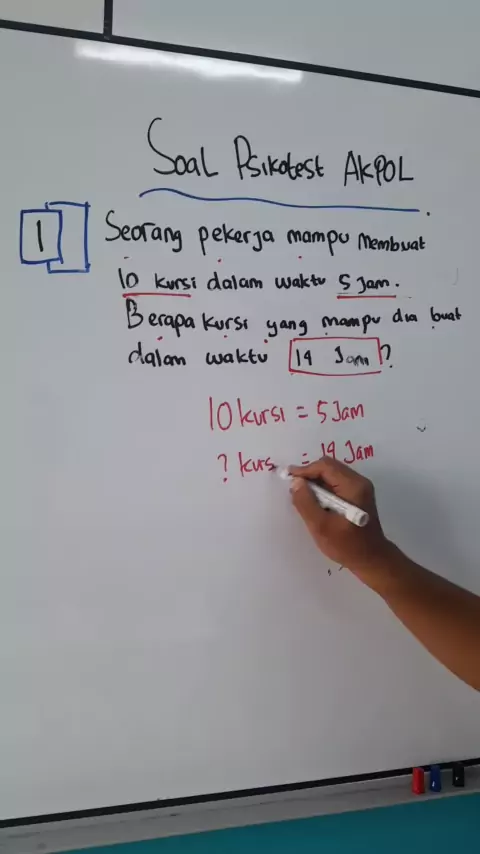 Soal Psikotest AKPOL
1
Seorang pekerja mampu membuat
10 kursi dalam waktu 5 Jam.
Berapa kursi yang mampu dia buat
dalam waktu 19 Jam ?
10 kursi = 5 Jam
? kurs = 19 Jam